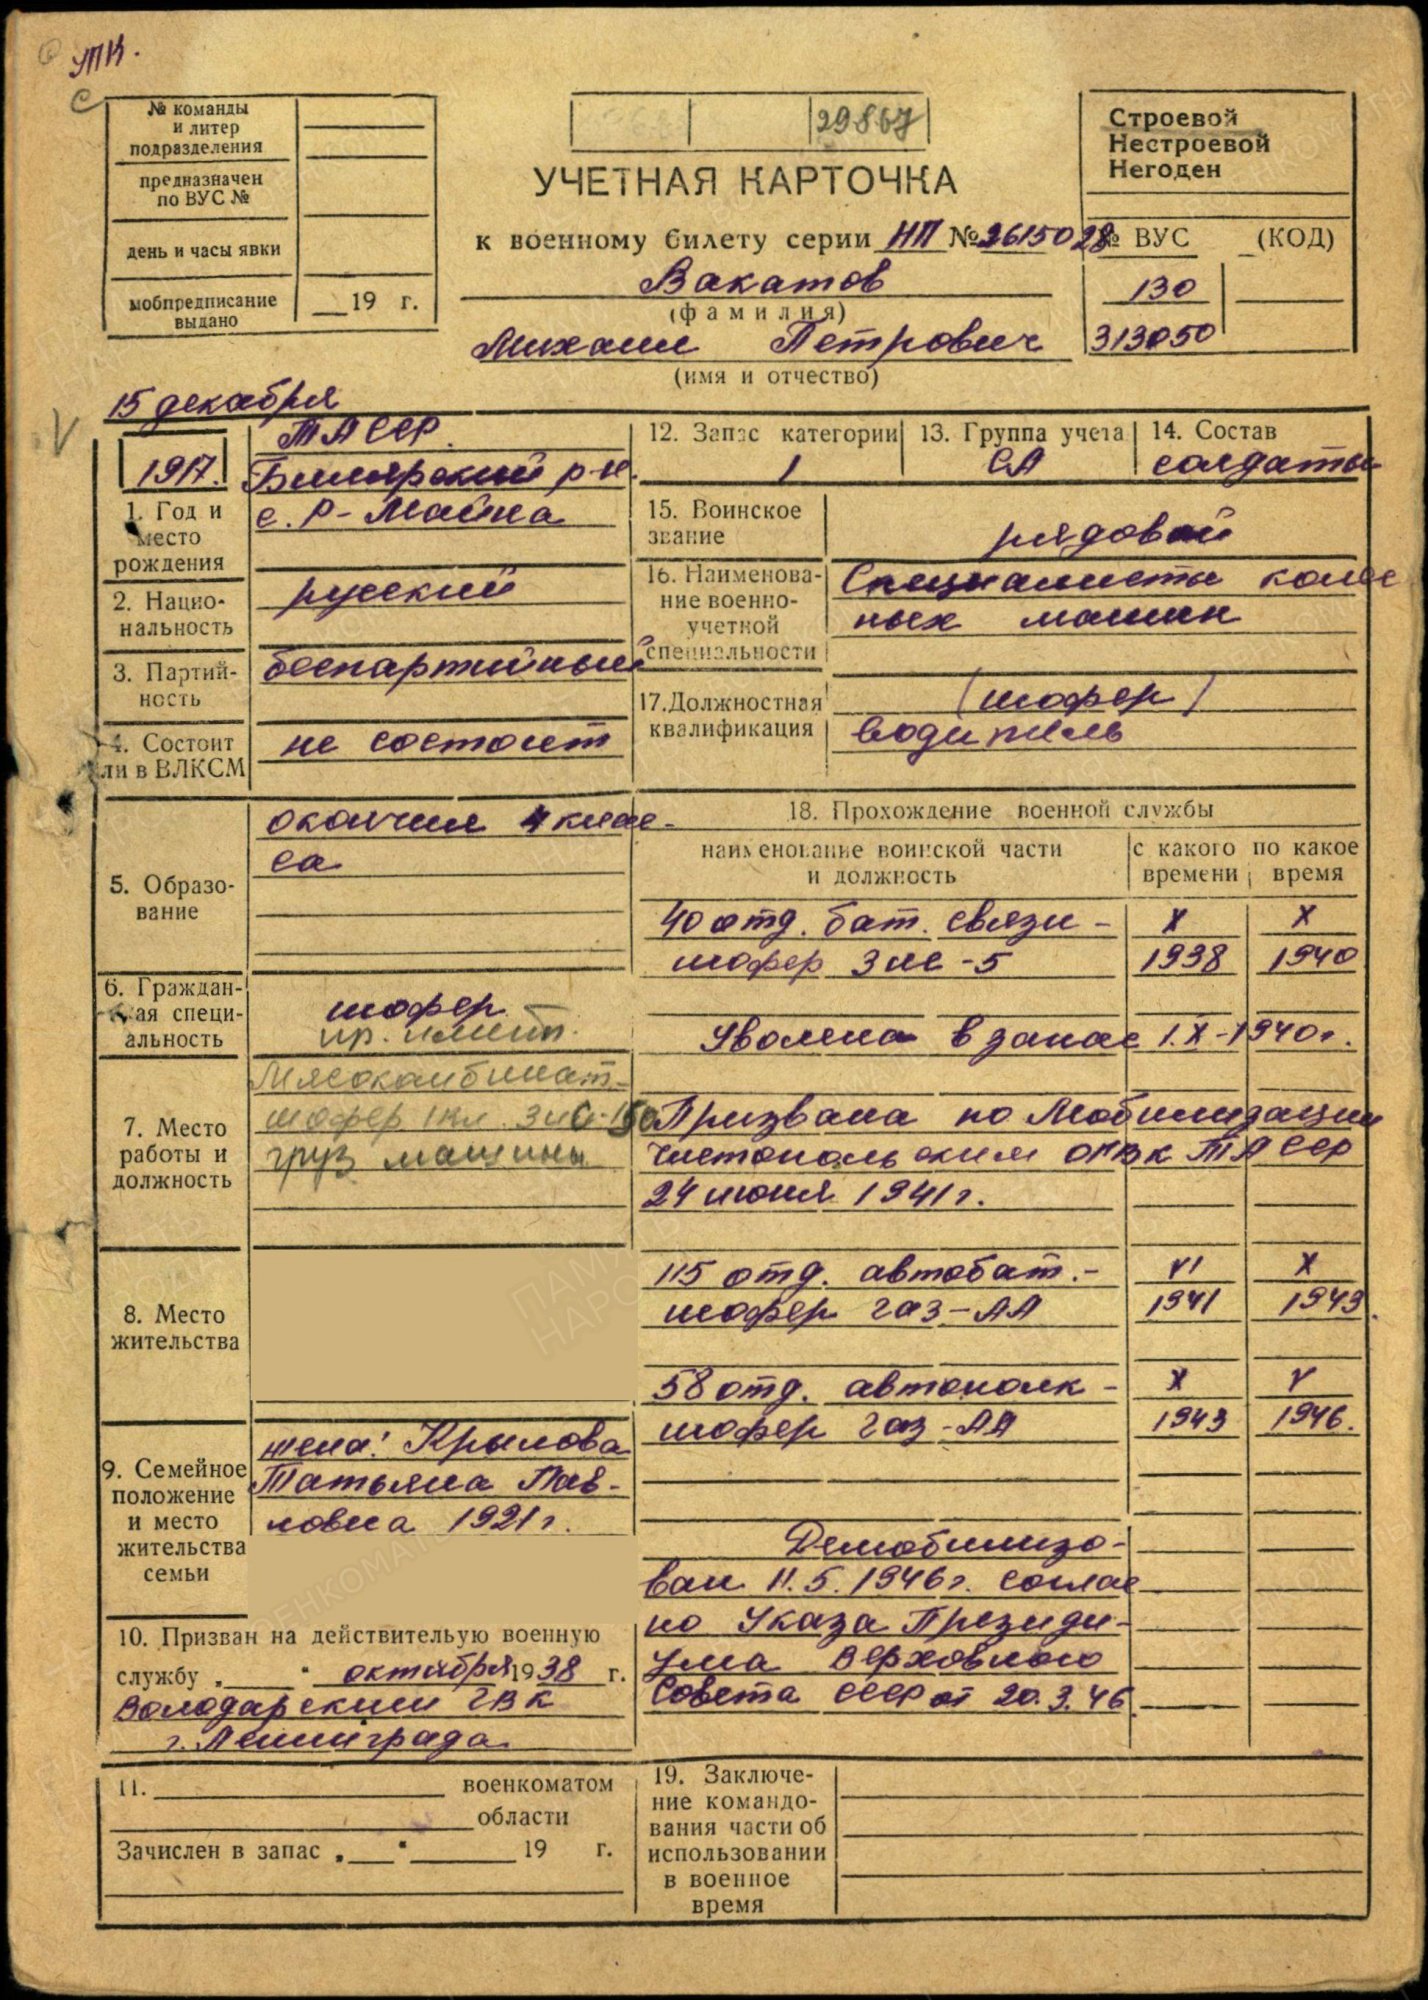 УПК.
С
№ команды
и литер
подразделения
предназначен
по ВУС №
день и часы явки
мобпредписание
выдано
19 г.
29867
УЧЕТНАЯ КАРТОЧКА
к военному билету серии НП № 2615028
Вакатов
(фамилия)
Михаил Петрович
(имя и отчество)
Строевой
Нестроевой
Негоден
№ ВУС (КОД)
130
313050
15 декабря
1917.
1. Год и
место
рождения
ТАССР.
Билярский р-н.
с. Р-Майна
2. Нацио-
нальность
русский
3. Партий-
ность
беспартийный
4. Состоит
ли в ВЛКСМ
не состоит
5. Образо-
вание
окончил 4 клас-
са
6. Граждан-
ская специ-
альность
шофер
7. Место
работы и
должность
Мясокомбинат-
шофер 1кл. Зис-150
груз машины
8. Место
жительства
9. Семейное
положение
и место
жительства
семьи
жена: Крылова
Татьяна Пав-
ловна 1921г.
10. Призван на действителъую военную
службу „ “ октября 1938 г.
Володарским ГВК
г. Ленинграда
11. военкоматом
области
Зачислен в запас „ “ 19 г.
12. Запас категории
1
13. Группа учета
СА
14. Состав
солдаты
15. Воинское
звание
рядовой
16. Наименова-
ние военно-
учетной
специальности
Специалисты колес
ных машин
17. Должностная
квалификация
(шофер)
водитель
18. Прохождение военной службы
наименование воинской части
и должность
с какого
времени
по какое
время
40 отд. бат. связи - X X
шофер Зис-5 1938 1940
Уволена в запас 1.X-1940г.
Призвана по Мобилизации
Чистопольским ОГВК ТАССР
24 июня 1941г.
115 отд. автобат.- VI X
шофер газ-АА 1941 1943.
58 отд. автополк - X V
шофер газ-АА 1943 1946.
Демобилизо-
ван 11.5.1946г. соглас
но Указа Президи-
ума Верховного
Совета СССР от 20.3.46
19. Заключе-
ние командо-
вания части об
использовании
в военное
время